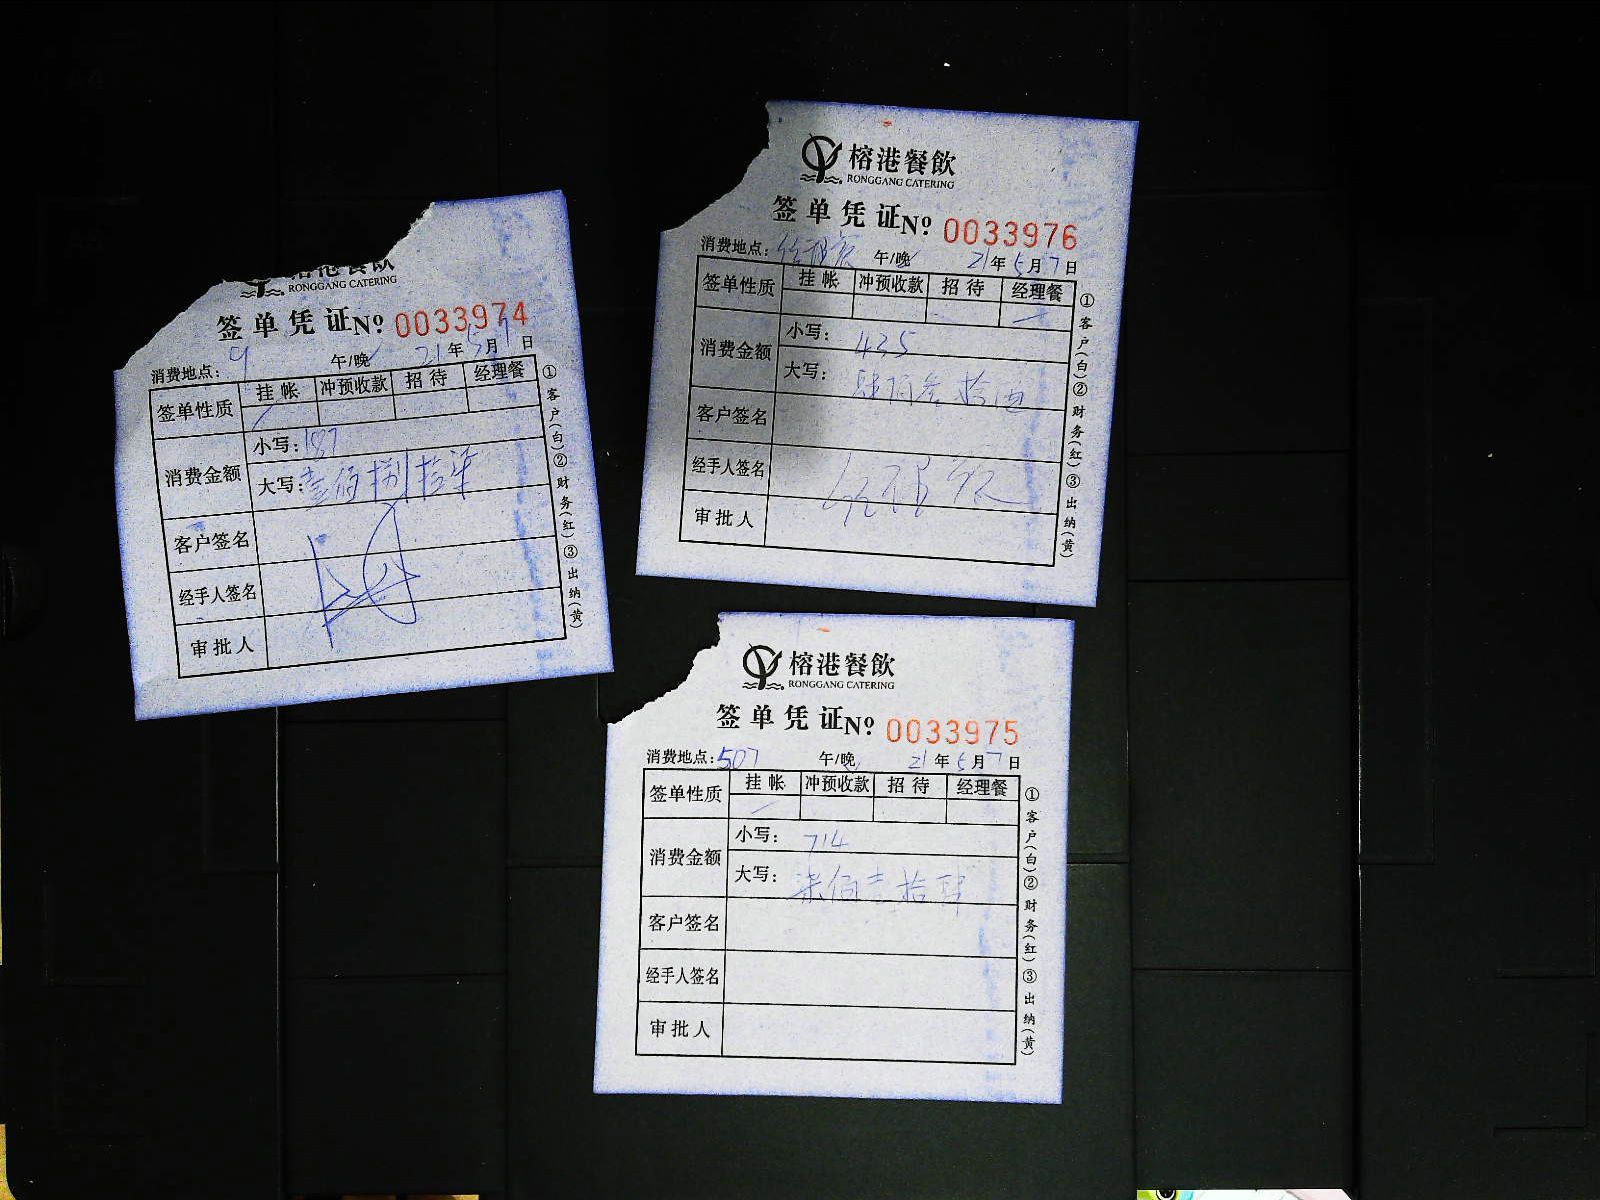 RONGGANG CATERING
签单凭证 Nº 0033974
消费地点: 9 午/晚 21年5月7日
签单性质 挂帐 冲预收款 招待 经理餐
消费金额
小写: 187
大写: 壹佰捌拾柒
客户签名
经手人签名
审批人
①客户(白)②财务(红)③出纳(黄)
榕港餐飲
RONGGANG CATERING
签单凭证 Nº 0033976
消费地点: 午/晚 21年5月7日
签单性质 挂帐 冲预收款 招待 经理餐
消费金额
小写: 435
大写: 佰叁拾
客户签名
经手人签名
审批人
①客户(白)②财务(红)③出纳(黄)
榕港餐飲
RONGGANG CATERING
签单凭证 Nº 0033975
消费地点: 507 午/晚 21年5月7日
签单性质 挂帐 冲预收款 招待 经理餐
消费金额
小写: 714
大写: 柒佰壹拾肆
客户签名
经手人签名
审批人
①客户(白)②财务(红)③出纳(黄)